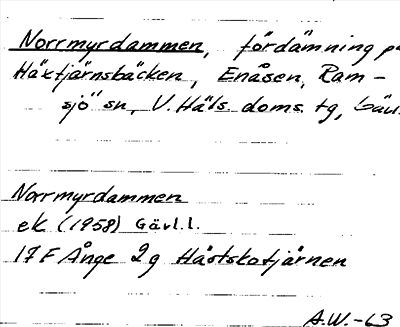 Norrmyrdammen, fördämning på
Häxtjärnsbäcken, Enåsen, Ram-
sjö sn, V. Häls. doms. tg, Gävl.
Norrmyrdammen
ek (1958) Gävl.l.
17 F Ånge 2g Hästskotjärnen
A.W.-63